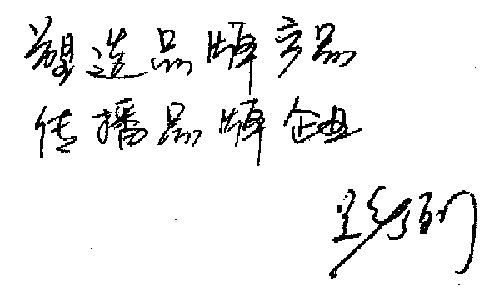 塑造品牌产品
传播品牌企业